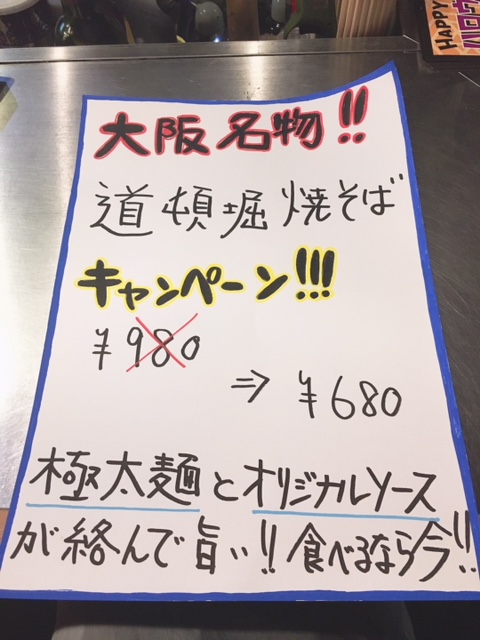 HAPPY
ハロウ
大阪名物!!
道頓堀焼そば
キャンペーン!!!
¥980
⇒ ¥680
極太麺とオリジナルソース
が絡んで旨い!! 食べるなら今!!